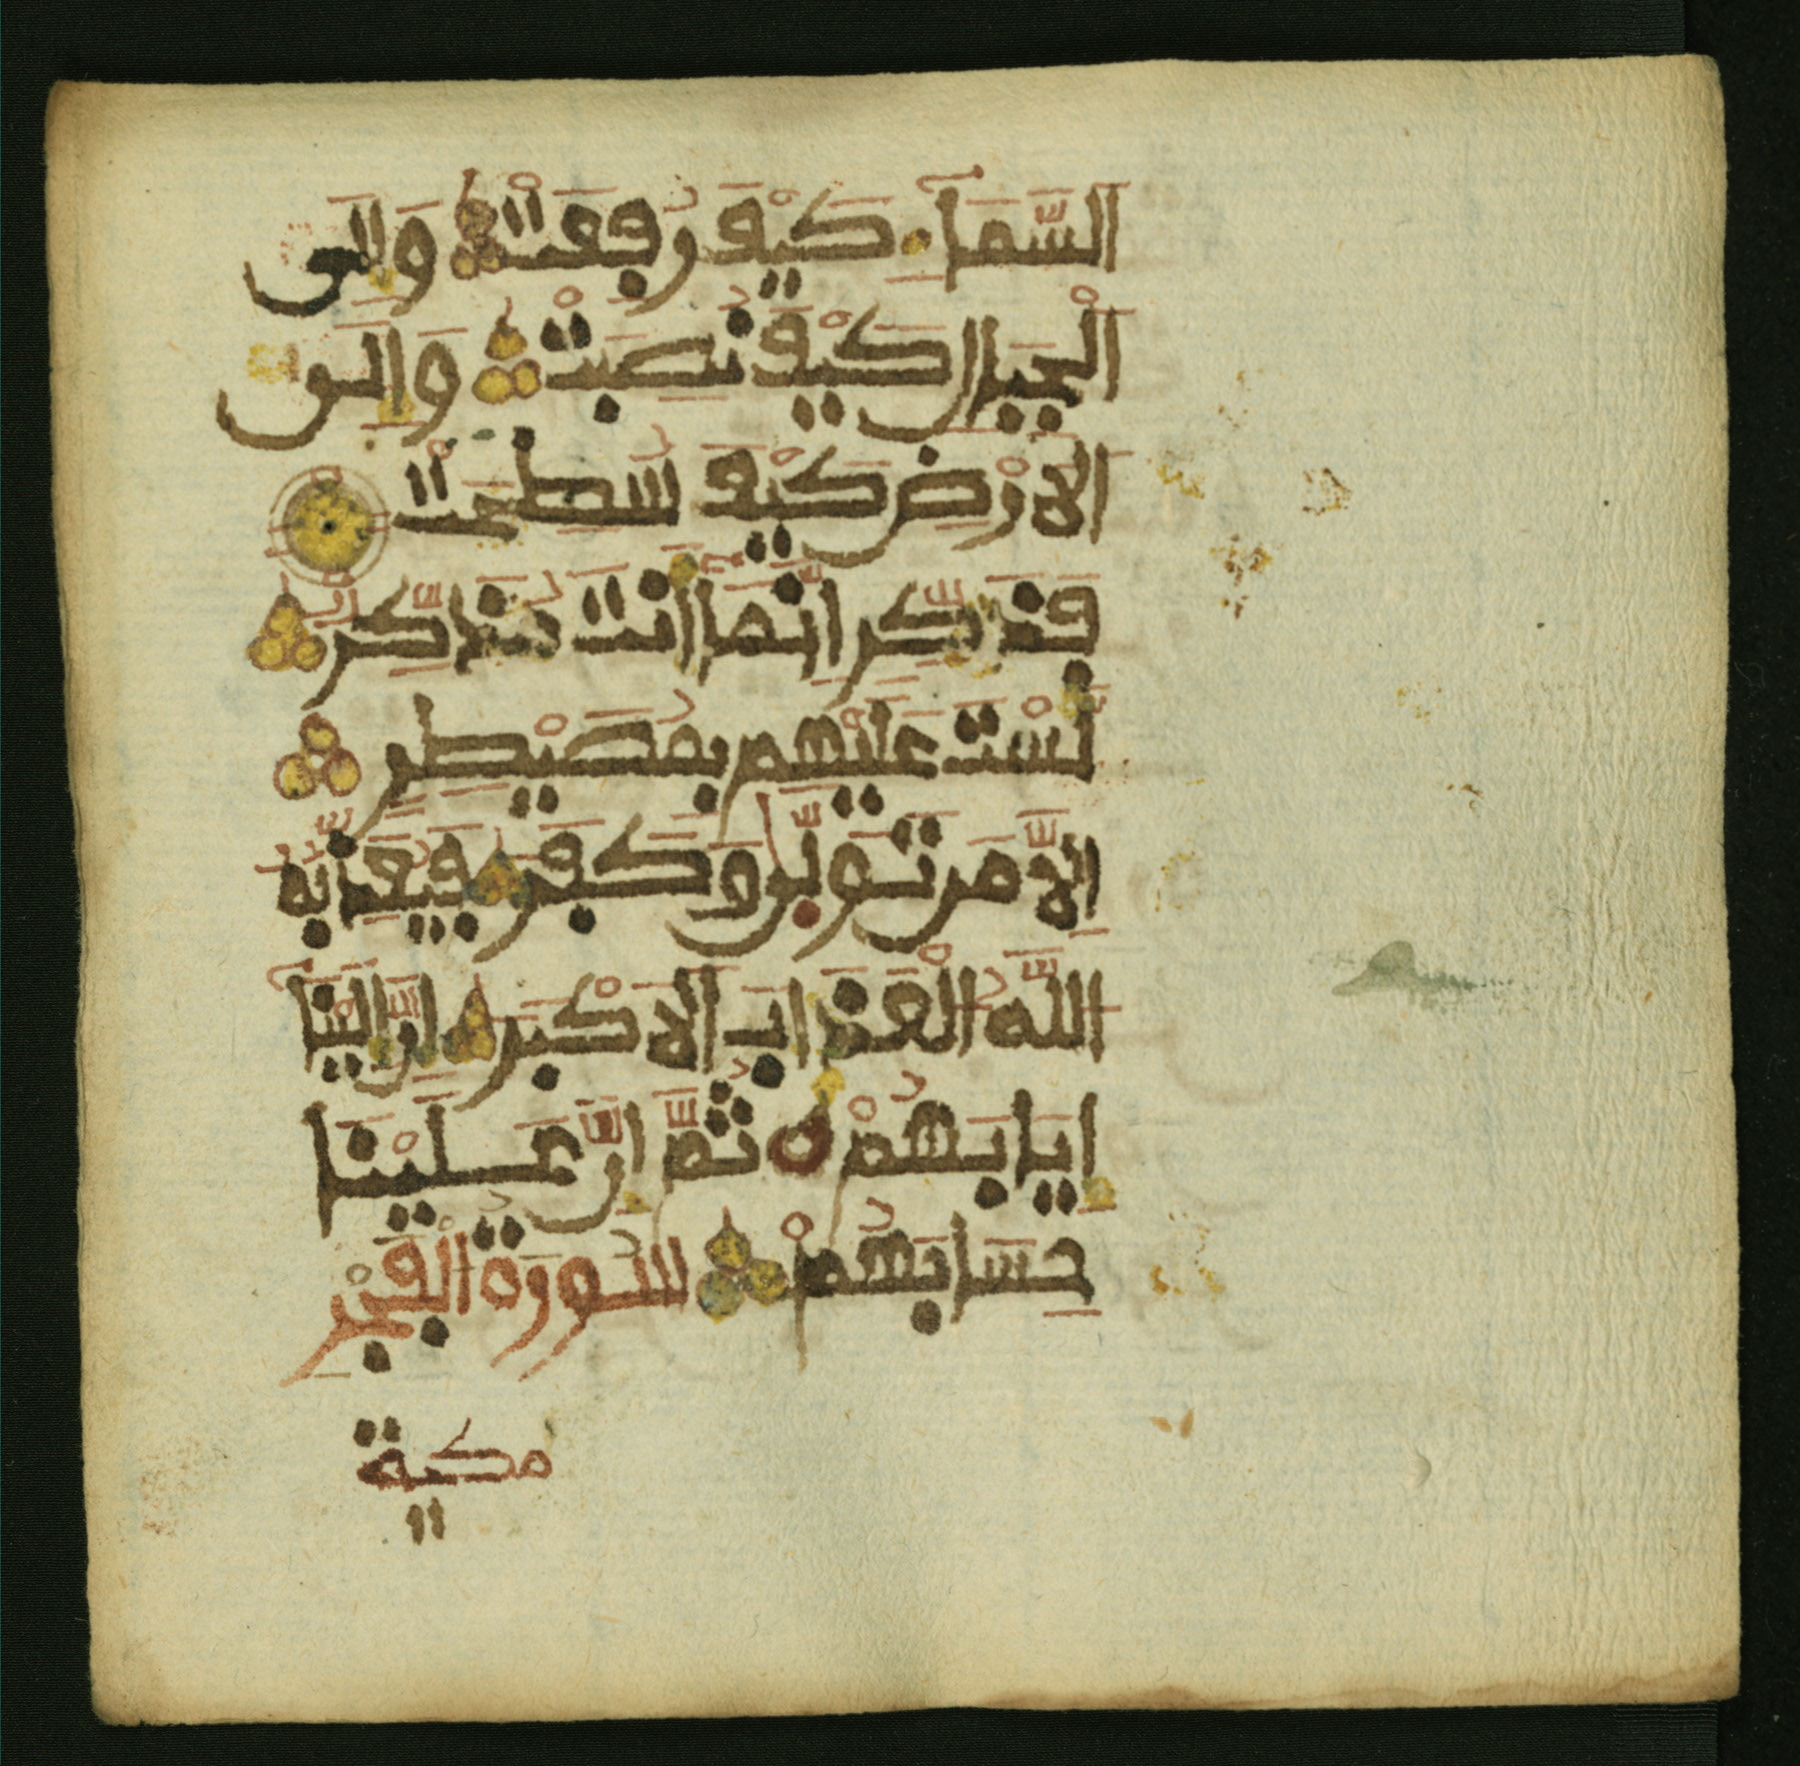 السَّمَآءِ كَيْفَ رُفِعَتْ وَإِلَى
الْجِبَالِ كَيْفَ نُصِبَتْ وَإِلَى
الَارْضِ كَيْفَ سُطِحَتْ
فَذَكِّرِ اِنَّمَآ أَنتَ مُذَكِّرٌ
لَّسْتَ عَلَيْهِم بِمُصَيْطِرٍ
اِلَّا مَن تَوَلَّىٰ وَكَفَرَ فَيُعَذِّبُهُ
اللَّهُ الْعَذَابَ الَاكْبَرَ إِنَّ إِلَيْنَآ
إِيَابَهُمْ ثُمَّ إِنَّ عَلَيْنَا
حِسَابَهُمْ سُورَةُ الْفَجْرِ
مكية